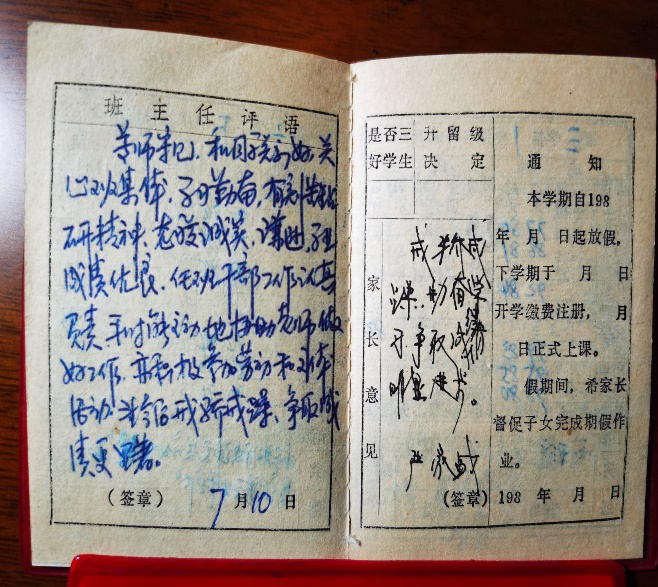 班主任评语
尊师守纪、和同学关系好、关
心班集体，学习勤奋，有刻苦钻
研精神、老实诚实、谦逊，学习
成绩优良，任班干部工作认真
负责，平时能主动地协助老师做
好工作，亦积极参加劳动和文体
活动。望今后戒骄戒躁、争取成
绩更显著。
（签章） 7月10日
是否三好学生
升留级决定
家长意见
戒骄戒
躁，勤奋学
习，争取成绩
明显进步。
（签章）
通知
本学期自198
年 月 日起放假，
下学期于 月 日
开学缴费注册， 月
日正式上课。
假期间，希家长
督促子女完成期假作
业。
198 年 月 日